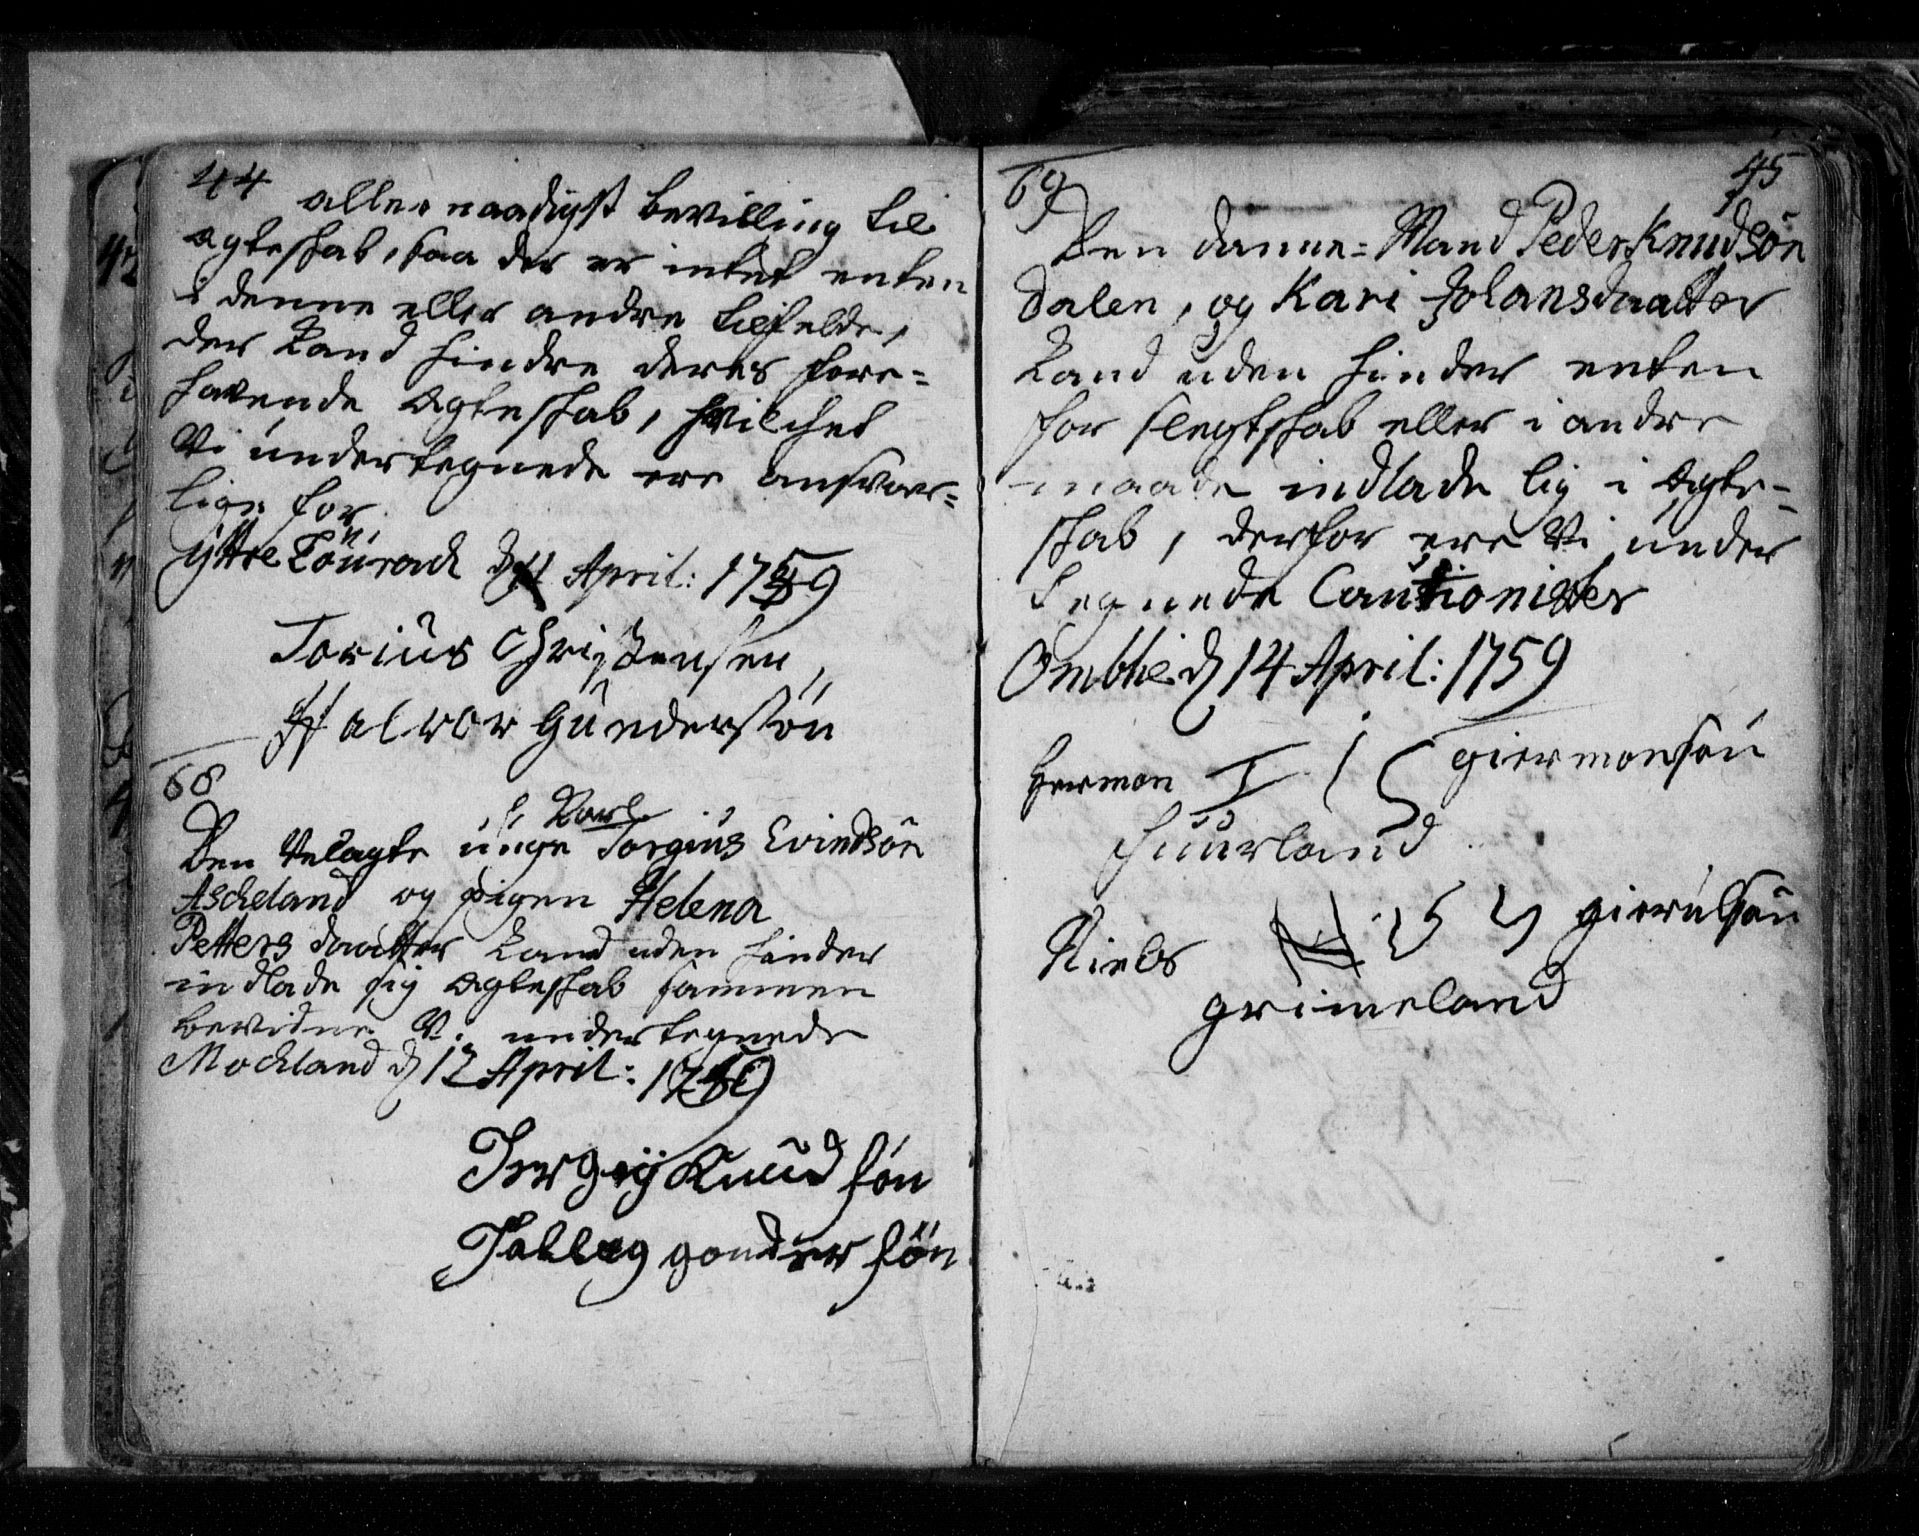 44
aller naadigst bevilling til
ægteskab, saa der er intet enten
i denne eller andre tilfelde,
der kand hindre deres fore=
havende Ægteskab, hvilchet
Vi undertegnede ere ansvar=
lige for
Yttre d 11 April: 1759
Torius Christensen
Halvor Gundersøn
68
Karl
Den Velagte unge Torgius Evindsøn
Ascheland og pigen Helena
Petters daatter kand uden hinder
indlade sig Ægteskab sammen
bevidner Vi undertegnede
Mockland d 12 April: 1759
Knud søn
Talleg gonder søn
45
69
Den danne=Mand Peder Knudsøn
Dalen, og Kari Johansdaatter
kand uden hinder enten
for slegtskab eller i andre
maade indlade sig i Ægte-
skab, derfor ere Vi under
tegnede Cautionister
Omblie d 14 April: 1759
Herman giermonsøn
Niels
grimeland